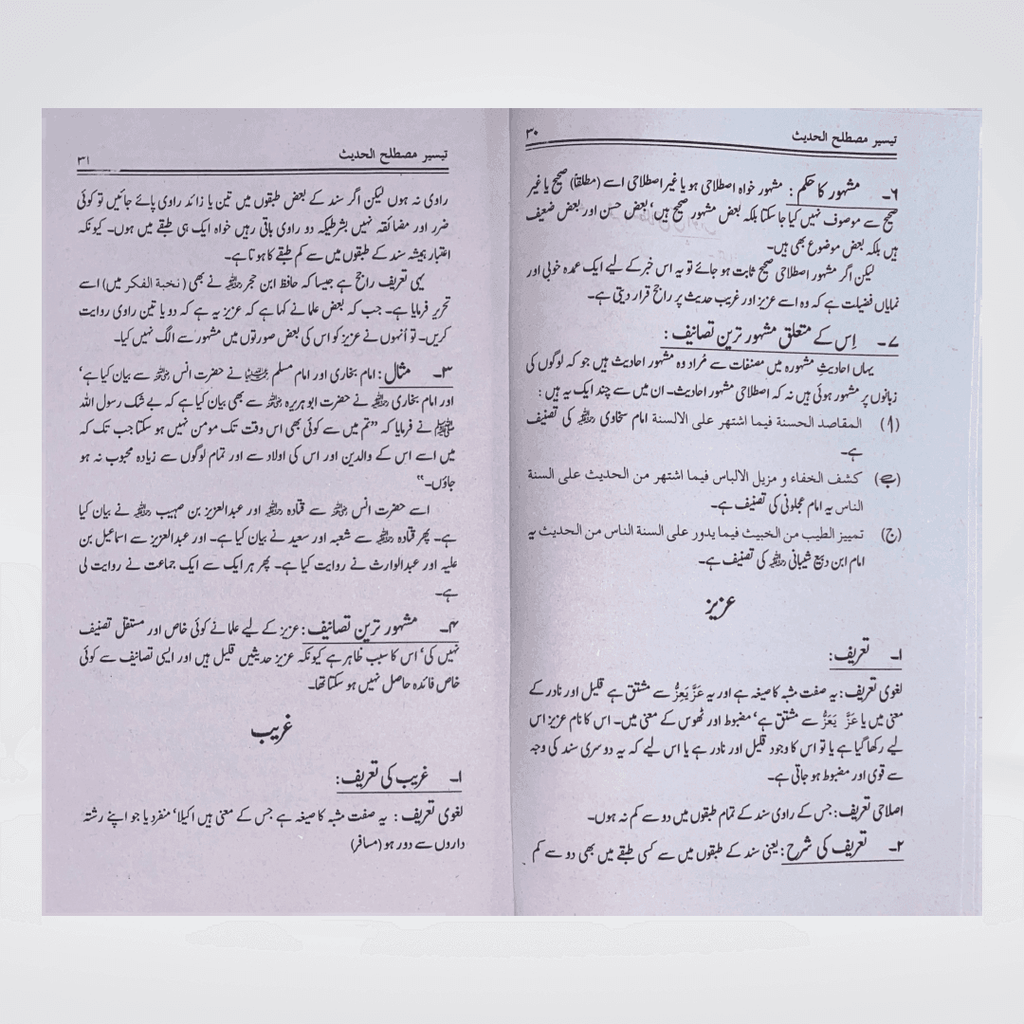 تیسیر مصطلح الحدیث ۳۰
۶۔ مشہور کا حکم : مشہور خواہ اصطلاحی ہو یا غیر اصطلاحی اسے (مطلقاً) صحیح یا غیر
صحیح سے موصوف نہیں کیا جا سکتا بلکہ بعض مشہور صحیح ہیں‘ بعض حسن اور بعض ضعیف
ہیں بلکہ بعض موضوع بھی ہیں۔
لیکن اگر مشہور اصطلاحی صحیح ثابت ہو جائے تو یہ اس خبر کے لیے ایک عمدہ خوبی اور
نمایاں فضیلت ہے کہ وہ اسے عزیز اور غریب حدیث پر راجح قرار دیتی ہے۔
۷۔ اِس کے متعلق مشہور ترین تصانیف :
یہاں احادیثِ مشہورہ میں مصنفات سے مُراد وہ مشہور احادیث ہیں جو کہ لوگوں کی
زبانوں پر مشہور ہوئی ہیں نہ کہ اصطلاحی مشہور احادیث۔ ان میں سے چند ایک یہ ہیں :
(ا) المقاصد الحسنة فيما اشتهر على الالسنة امام سخاوی رحمہ اللہ کی تصنیف
ہے۔
(ب) كشف الخفاء و مزيل الالباس فيما اشتهر من الحديث على السنة
الناس یہ امام عجلونی کی تصنیف ہے۔
(ج) تمييز الطيب من الخبيث فيما يدور على السنة الناس من الحديث یہ
امام ابن دبیع شیبانی رحمہ اللہ کی تصنیف ہے۔
عزیز
۱۔ تعریف :
لغوی تعریف : یہ صفت مشبہ کا صیغہ ہے اور یہ عَزَّ يَعِزُّ سے مشتق ہے قلیل اور نادر کے
معنی میں یا عَزَّ يَعَزُّ سے مشتق ہے‘ مضبوط اور ٹھوس کے معنی میں۔ اس کا نام عزیز اس
لیے رکھا گیا ہے یا تو اس کا وجود قلیل اور نادر ہے یا اس لیے کہ یہ دوسری سند کی وجہ
سے قوی اور مضبوط ہو جاتی ہے۔
اصلاحی تعریف : جس کے راوی سند کے تمام طبقوں میں دو سے کم نہ ہوں۔
۲۔ تعریف کی شرح : یعنی سند کے طبقوں میں سے کسی طبقے میں بھی دو سے کم
تیسیر مصطلح الحدیث ۳۱
راوی نہ ہوں لیکن اگر سند کے بعض طبقوں میں تین یا زائد راوی پائے جائیں تو کوئی
ضرر اور مضائقہ نہیں بشرطیکہ دو راوی باقی رہیں خواہ ایک ہی طبقے میں ہوں۔ کیونکہ
اعتبار ہمیشہ سند کے طبقوں میں سے کم طبقے کا ہوتا ہے۔
یہی تعریف راجح ہے جیسا کہ حافظ ابن حجر رحمہ اللہ نے بھی (نخبة الفکر میں) اسے
تحریر فرمایا ہے۔ جب کہ بعض علما نے کہا ہے کہ عزیز یہ ہے کہ دو یا تین راوی روایت
کریں۔ تو اُنہوں نے عزیز کو اس کی بعض صورتوں میں مشہور سے الگ نہیں کیا۔
۳۔ مثال : امام بخاری اور امام مسلم نے حضرت انس رضی اللہ عنہ سے بیان کیا ہے‘
اور امام بخاری رحمہ اللہ نے حضرت ابو ہریرہ رضی اللہ عنہ سے بھی بیان کیا ہے کہ بے شک رسول اللہ
ﷺ نے فرمایا کہ ”تم میں سے کوئی بھی اس وقت تک مومن نہیں ہو سکتا جب تک کہ
میں اسے اس کے والدین اور اس کی اولاد سے اور تمام لوگوں سے زیادہ محبوب نہ ہو
جاؤں۔“
اسے حضرت انس رضی اللہ عنہ سے قتادہ رحمہ اللہ اور عبدالعزیز بن صہیب رحمہ اللہ نے بیان کیا
ہے۔ پھر قتادہ رحمہ اللہ سے شعبہ اور سعید نے بیان کیا ہے۔ اور عبدالعزیز سے اسماعیل بن
علیہ اور عبدالوارث نے روایت کیا ہے۔ پھر ہر ایک سے ایک جماعت نے روایت لی
ہے۔
۴۔ مشہور ترین تصانیف : عزیز کے لیے علما نے کوئی خاص اور مستقل تصنیف
نہیں کی‘ اس کا سبب ظاہر ہے کیونکہ عزیز حدیثیں قلیل ہیں اور ایسی تصانیف سے کوئی
خاص فائدہ حاصل نہیں ہو سکتا تھا۔
غریب
۱۔ غریب کی تعریف :
لغوی تعریف : یہ صفت مشبہ کا صیغہ ہے جس کے معنی ہیں اکیلا‘ منفرد یا جو اپنے رشتہ
داروں سے دور ہو (مسافر)